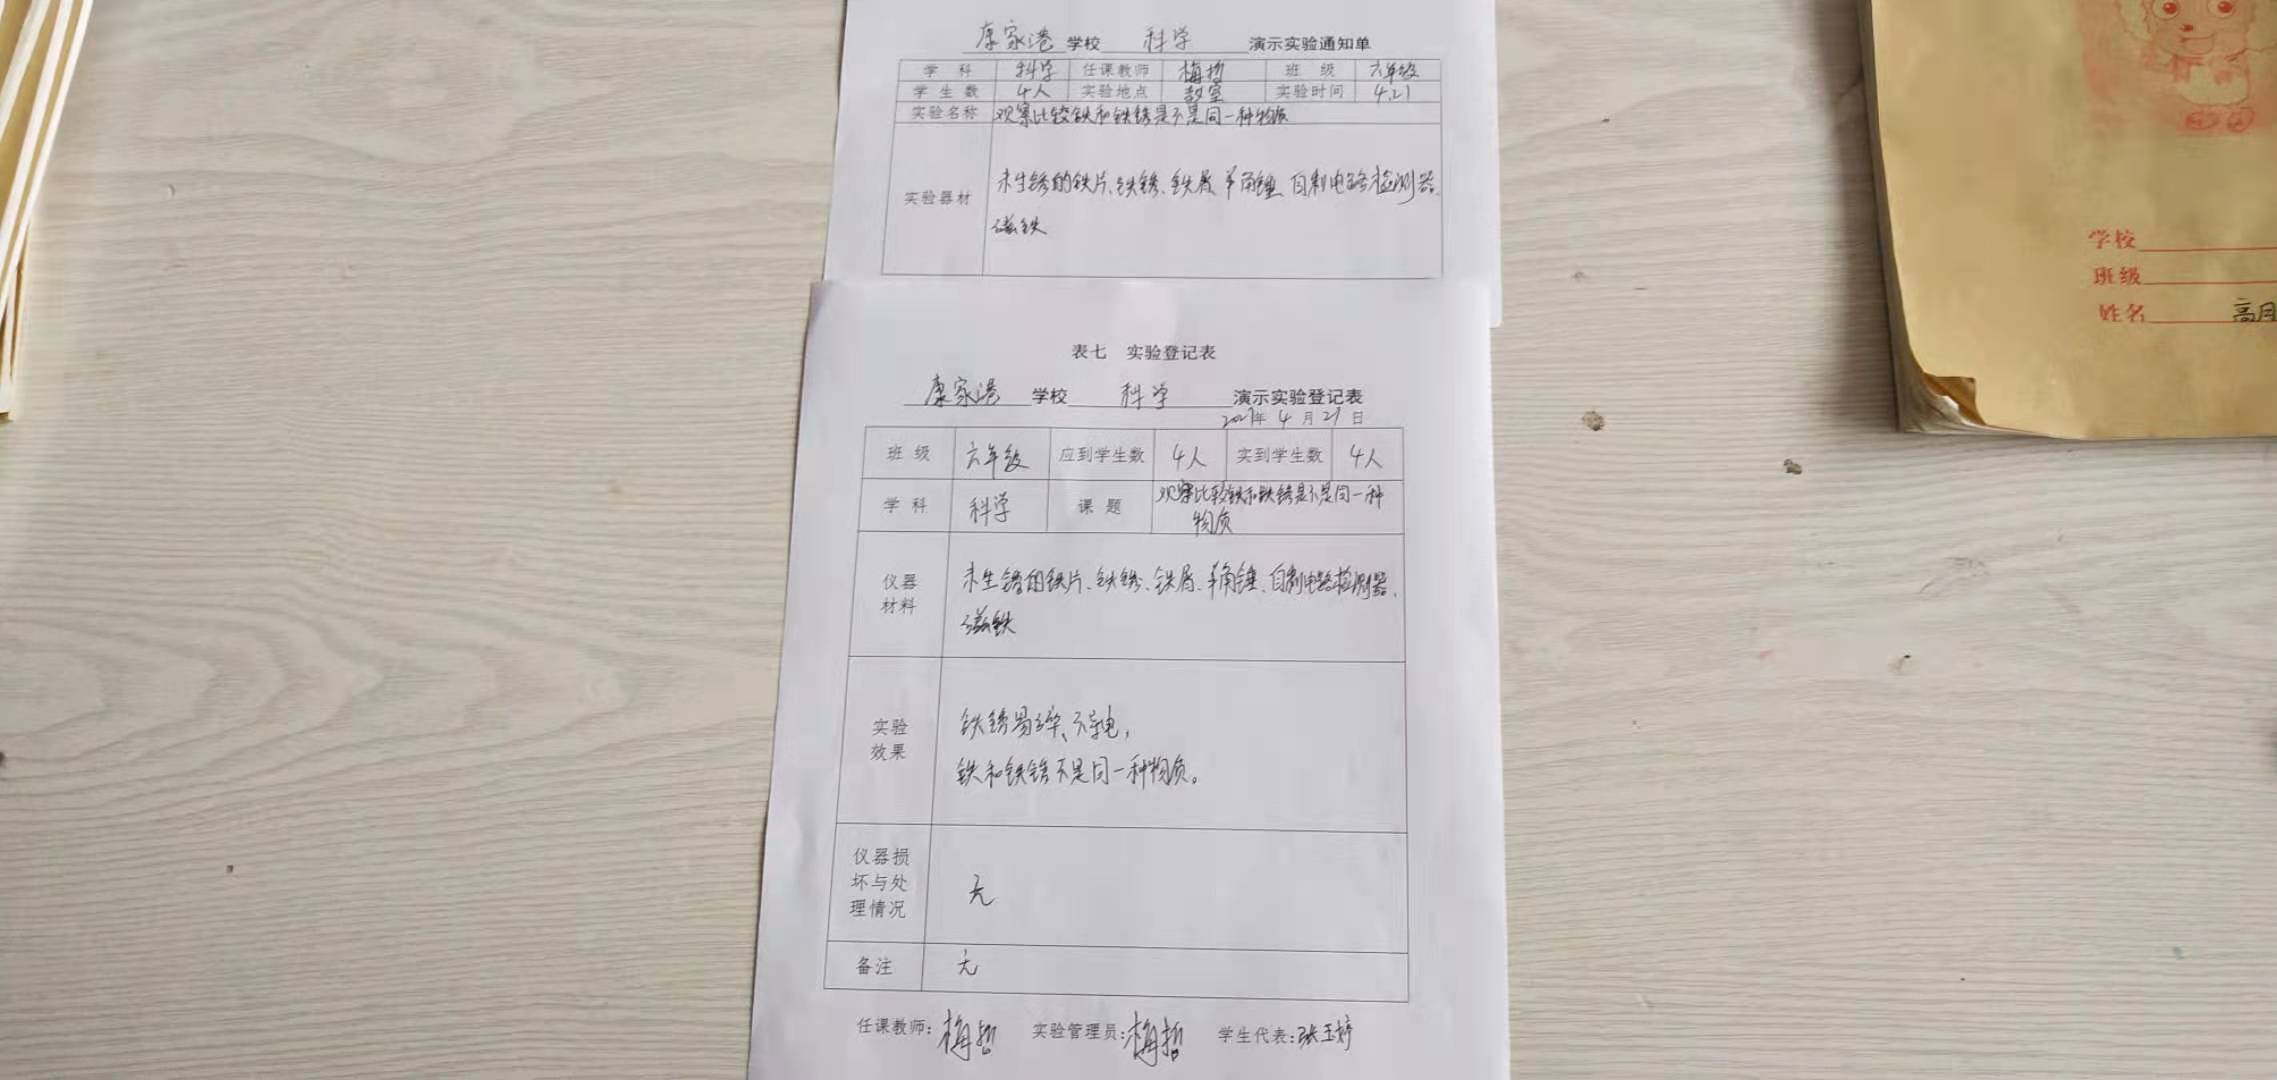 康家港 学校 科学 演示实验通知单
学 科 科学 任课教师 梅哲 班 级 六年级
学 生 数 4人 实验地点 教室 实验时间 4.21
实验名称 观察比较铁和铁锈是不是同一种物质
实验器材 未生锈的铁片、铁锈、铁屑、羊角锤、自制电路检测器、
磁铁
表七 实验登记表
康家港 学校 科学 演示实验登记表
2021年 4 月 21 日
班 级 六年级 应到学生数 4人 实到学生数 4人
学 科 科学 课 题 观察比较铁和铁锈是不是同一种
物质
仪器
材料
未生锈的铁片、铁锈、铁屑、羊角锤、自制电路检测器、
磁铁
实验
效果
铁锈易碎、不导电,
铁和铁锈不是同一种物质。
仪器损
坏与处
理情况
无
备注 无
任课教师:梅哲 实验管理员:梅哲 学生代表:张玉婷
学校
班级
姓名 高月